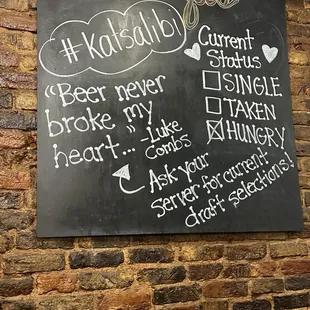 #Katsalibi
"Beer never
broke my
heart..."
-Luke
Combs
Current
Status
SINGLE
TAKEN
HUNGRY
Ask your
server for current
draft selections!